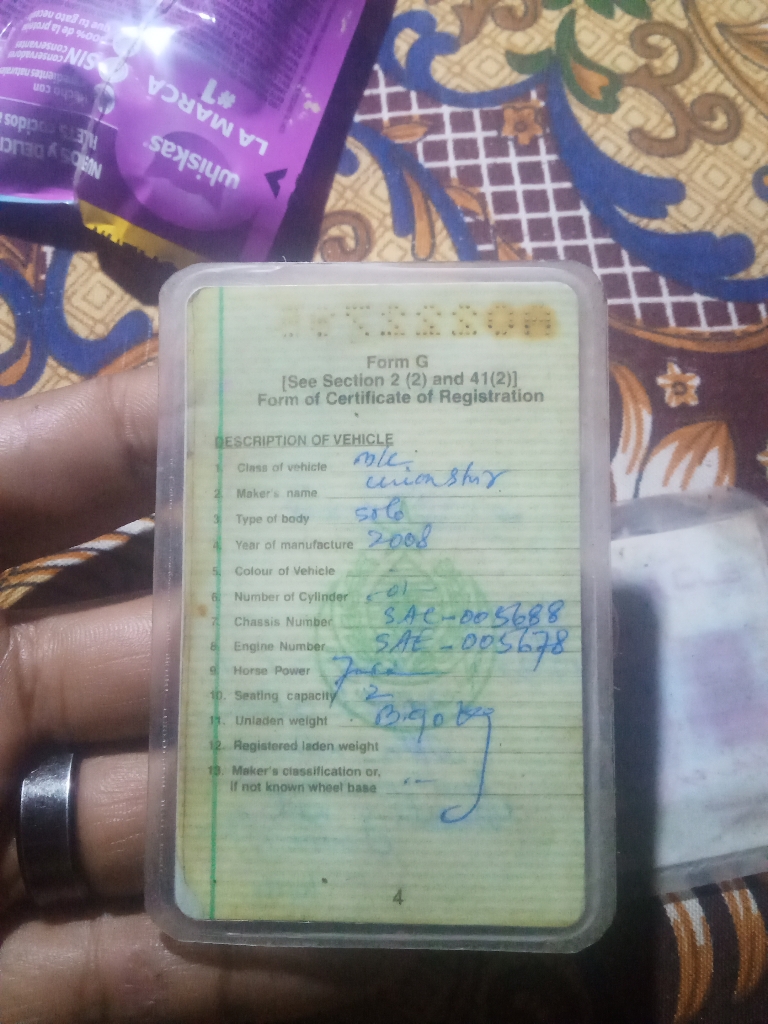 NUEVOS y DELICI
FILETS cocidos
Hecho con
ingredientes naturales
SIN conservantes
100% de la
whiskas
LA MARCA
#1
Form G
[See Section 2 (2) and 41(2)]
Form of Certificate of Registration
DESCRIPTION OF VEHICLE
1. Class of vehicle M/c
2. Maker's name union star
3. Type of body solo
4. Year of manufacture 2008
5. Colour of Vehicle
6. Number of Cylinder 01
7. Chassis Number SAC-005688
8. Engine Number SAE-005678
9. Horse Power
10. Seating capacity 2
11. Unladen weight
12. Registered laden weight
13. Maker's classification or,
if not known wheel base
4